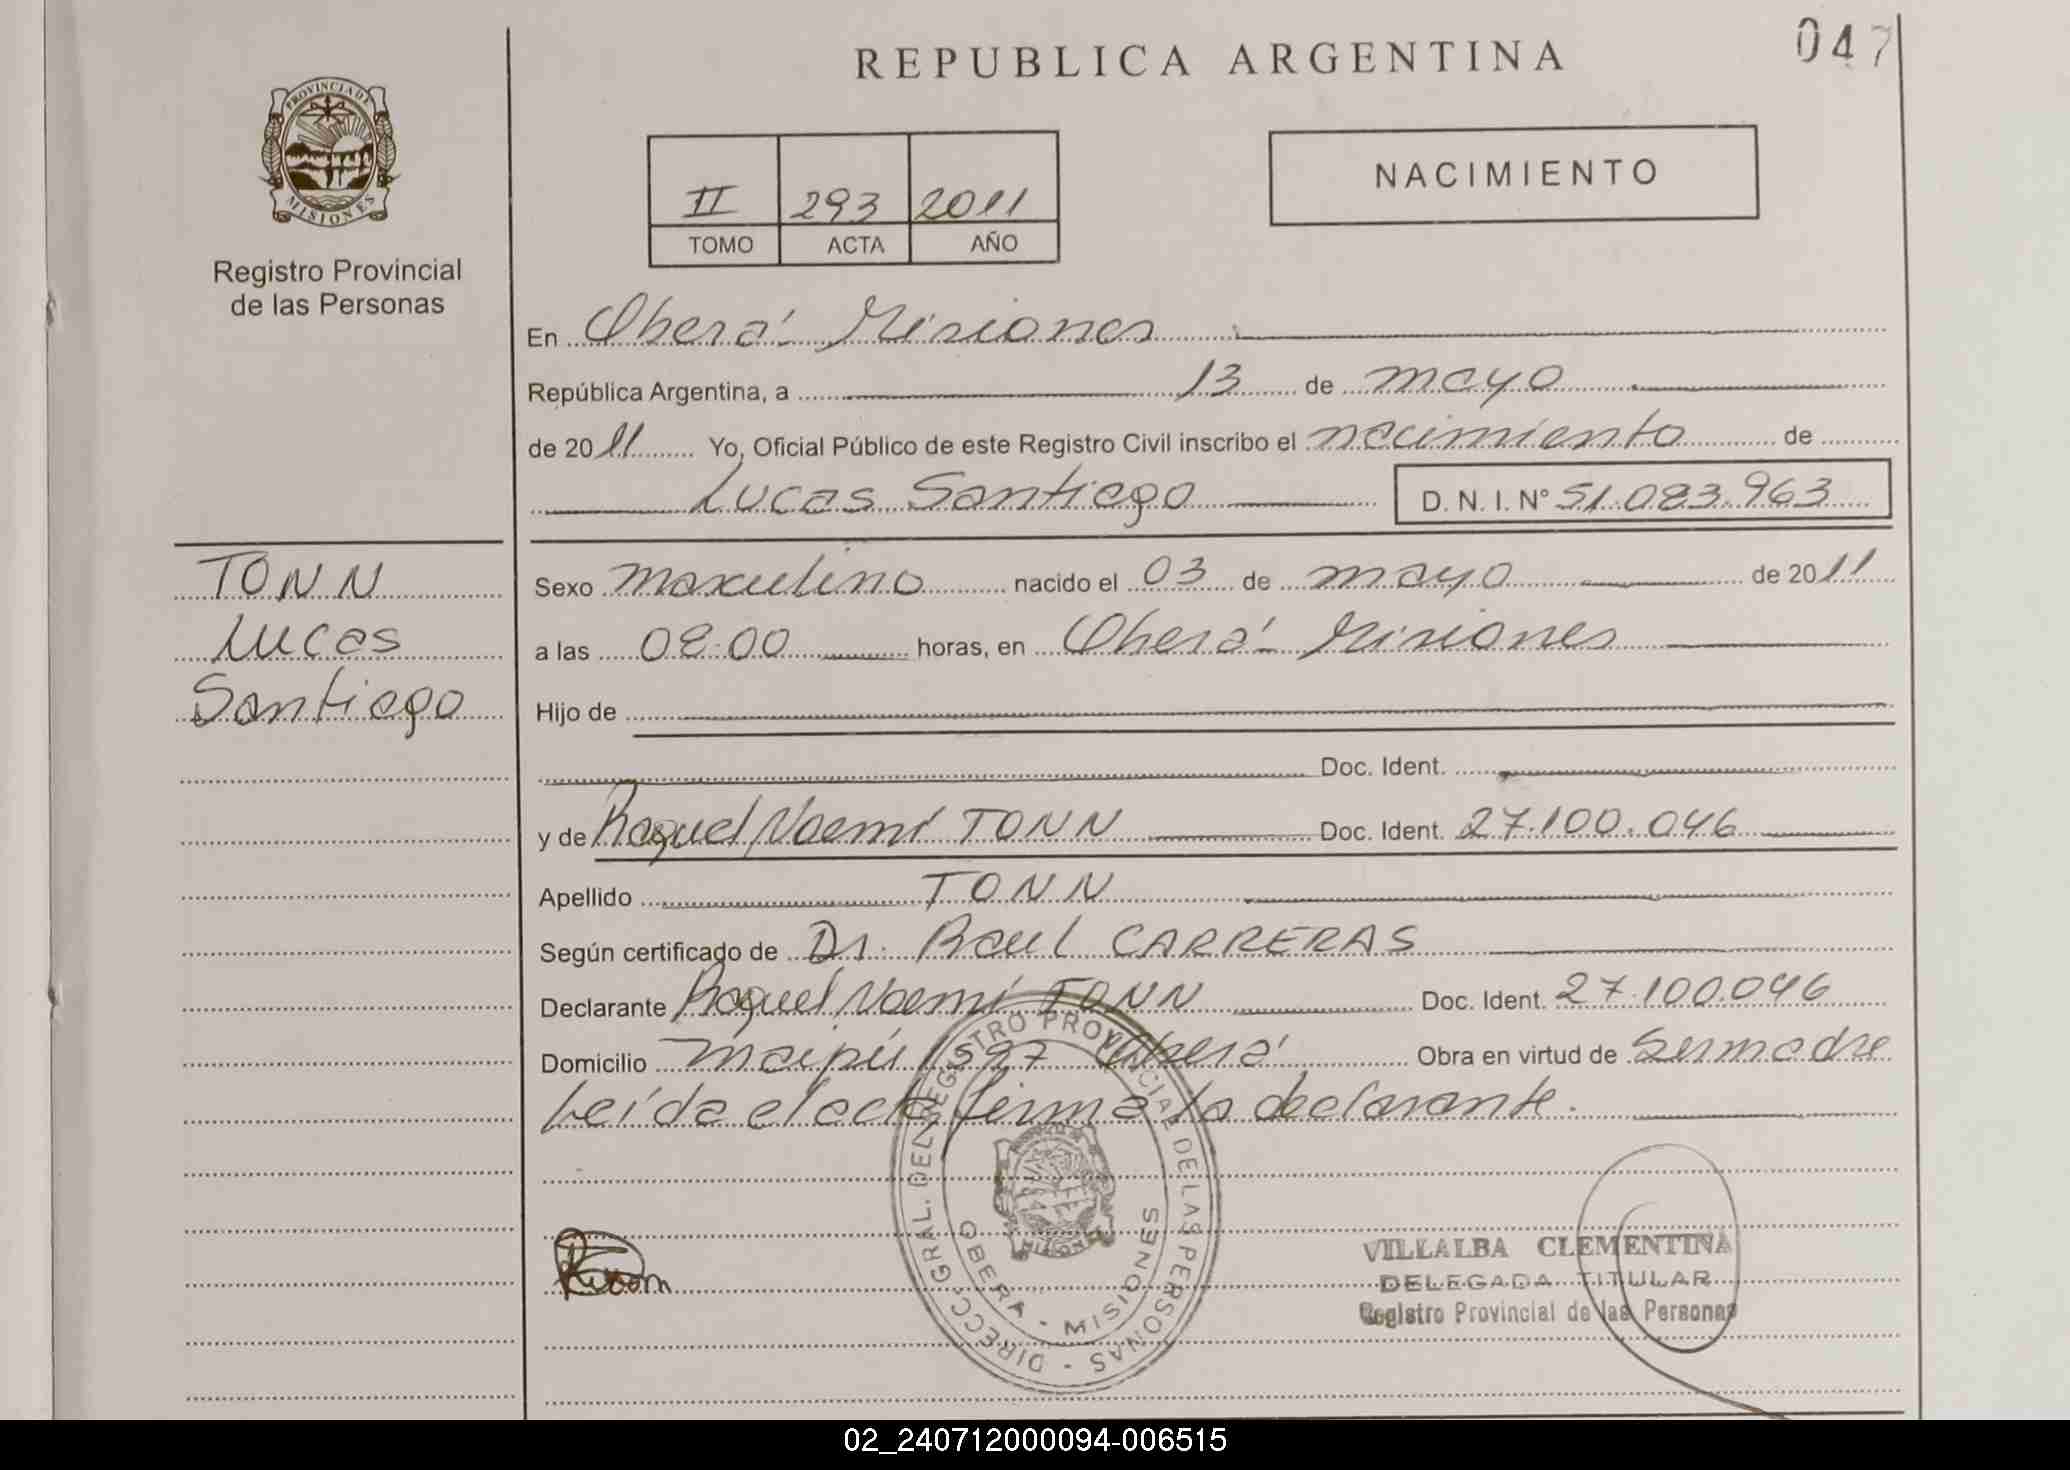 047
REPUBLICA ARGENTINA
PROVINCIA DE
MISIONES
Registro Provincial
de las Personas
II 293 2011
TOMO ACTA AÑO
NACIMIENTO
En Oberá Misiones
República Argentina, a 13 de mayo
de 2011 Yo, Oficial Público de este Registro Civil inscribo el nacimiento de
Lucas Santiago D. N. I. N° 51.083.963
TONN
Lucas
Santiago
Sexo masculino nacido el 03 de mayo de 2011
a las 08:00 horas, en Oberá Misiones
Hijo de
Doc. Ident.
y de Raquel Noemí TONN Doc. Ident. 27.100.046
Apellido TONN
Según certificado de Dr. Raul CARRERAS
Declarante Raquel Noemí TONN Doc. Ident. 27.100.046
Domicilio maipú 1597 Oberá Obra en virtud de Ser madre
Leída el acta firma la declarante.
DIRECC. GRAL. DEL REGISTRO PROVINCIAL DE LAS PERSONAS
OBERA - MISIONES
VILLALBA CLEMENTINA
DELEGADA TITULAR
Registro Provincial de las Personas
02_240712000094-006515